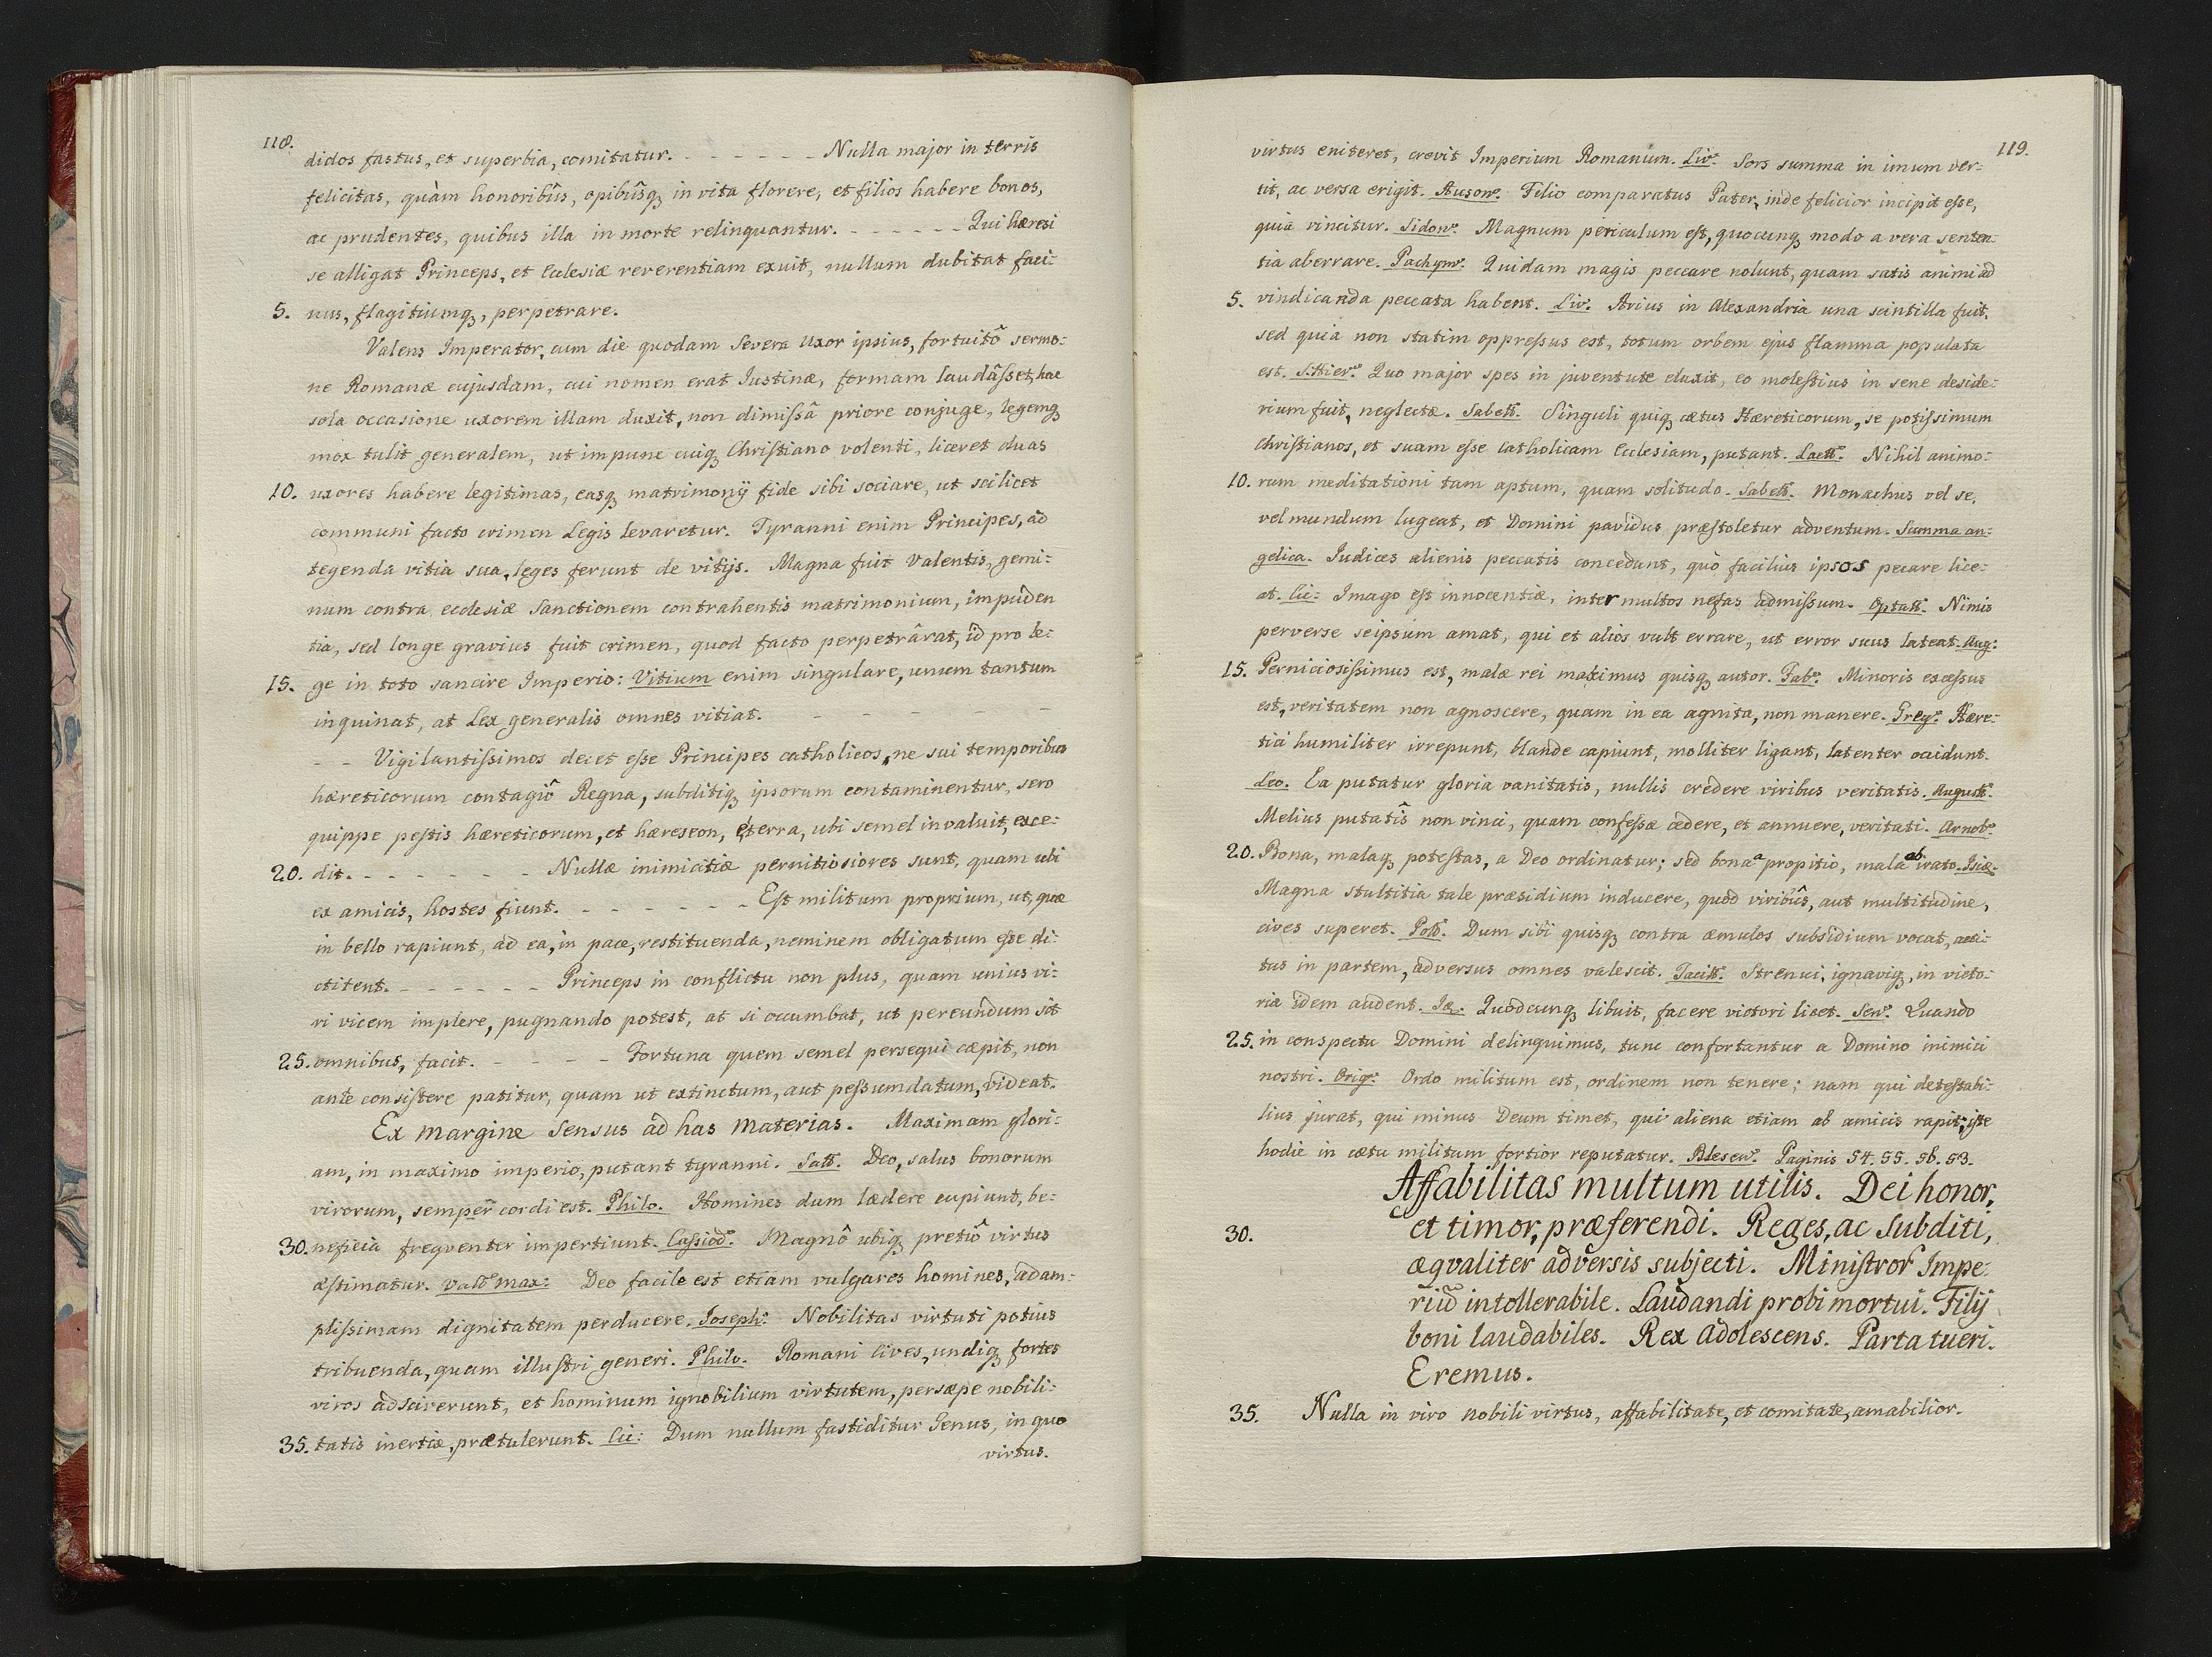 118.
didos fastus, et superbia, comitatur. - - - - - - Nulla major in terris
felicitas, quàm honoribûs, opibûsq; in vita florere, et filios habere bonos,
ac prudentes, quibus illa in morte relinquantur. - - - - - - Qui hæresi
se alligat Princeps, et Ecclesiæ reverentiam exuit, nullum dubitat faci-
5. nus, flagitiumq;, perpetrare.
Valens Imperator, cum die quodam Severa Uxor ipsius, fortuitô sermo-
ne Romanæ cujusdam, cui nomen erat Justinæ, formam laudâsset, hac
sola occasione uxorem illam duxit, non dimissâ priore conjuge, legemq;
mox tulit generalem, ut impune cuiq; Christiano volenti, liceret duas
10. uxores habere legitimas, easq; matrimonij fide sibi sociare, ut scilicet
communi facto crimen Legis levaretur. Tyranni enim Principes, ad
tegenda vitia sua, leges ferunt de vitijs. Magna fuit Valentis, gemi-
num contra ecclesiæ Sanctionem contrahentis matrimonium, impuden
tia, sed longe gravius fuit crimen, quod facto perpetrârat, id pro le-
15. ge in toto sancire Imperio: Vitium enim singulare, unum tantum
inquinat, at Lex generalis omnes vitiat. - - - - -
- - Vigilantissimos decet esse Principes catholicos, ne sui temporibus
hæreticorum contagiô Regna, subditiq; ipsorum contaminentur, sero
quippe pestis hæreticorum, et hæreseon, è terra, ubi semel invaluit, exce-
20. dit. - - - - - - - Nullæ inimicitiæ pernitiosiores sunt, quam ubi
ex amicis, hostes fiunt. - - - - - - - Est militum proprium, ut, quæ
in bello rapiunt, ad ea, in pace, restituenda, neminem obligatum esse di-
ctitent. - - - - - - Princeps in conflictu non plus, quam unius vi-
ri vicem implere, pugnando potest, at si occumbat, ut pereundum sit
25. omnibus, facit. - - - - Fortuna quem semel persequi cæpit, non
ante consistere patitur, quam ut extinctum, aut pessumdatum, videat.
Ex margine Sensus ad has materias. Maximam glori-
am, in maximo imperio, putant tyranni. Sall. Deo, salus bonorum
virorum, semper cordi est. Philo. Homines dum lædere cupiunt, be-
30. neficia freqventer impertiunt. Cassiod. Magnô ubiq; pretiô virtus
æstimatur. Val. max: Deo facile est etiam vulgares homines, ad am-
plissimam dignitatem perducere. Joseph: Nobilitas virtuti potius
tribuenda, quam illustri generi. Philo. Romani Cives, undiq; fortes
viros adscirerunt, et hominum ignobilium virtutem, persæpe nobili-
35. tatis inertiæ, prætulerunt. Cic: Dum nullum fastiditur Genus, in quo
virtus.
119.
virtus eniteret, crevit Imperium Romanum. Liv. Sors summa in imum ver-
tit, ac versa erigit. Auson. Filio comparatus Pater, inde felicior incipit esse,
quia vincitur. Sidon. Magnum periculum est, quocunq; modo a vera senten-
tia aberrare. Pachym. Quidam magis peccare nolunt, quam satis animi ad
5. vindicanda peccata habent. Liv. Arius in Alexandria una scintilla fuit,
sed quia non statim oppressus est, totum orbem ejus flamma populata
est. S. Hier. Quo major spes in juventute eluxit, eo molestius in sene deside-
rium fuit, neglectæ. Sabell. Singuli quiq; cætus Hæreticorum, se potissimum
Christianos, et suam esse Catholicam Ecclesiam, putant. Lact. Nihil animo-
10. rum meditationi tam aptum, quam solitudo. Sabell. Monachus vel se,
vel mundum lugeat, et Domini pavidus præstoletur adventum. Summa an-
gelica. Judices alienis peccatis concedunt, quò facilius ipsos pecare lice-
at. Cic: Imago est innocentiæ, inter multos nefas admissum. Optat. Nimis
perverse seipsum amat, qui et alios vult errare, ut error suus lateat. Aug:
15. Perniciosissimus est, malæ rei maximus quisq; autor. Fab. Minoris excessus
est, veritatem non agnoscere, quam in ea agnita, non manere. Greg. Hære-
tici humiliter irrepunt, blande capiunt, molliter ligant, latenter occidunt.
Leo. Ea putatur gloria vanitatis, nullis credere viribus veritatis. August.
Melius putatis non vinci, quam confessæ cedere, et annuere, veritati. Arnob.
20. Bona, malaq; potestas, a Deo ordinatur; sed bona a propitio, mala ab irato. Isid.
Magna stultitia tale præsidium inducere, quod viribûs, aut multitudine,
cives superet. Poll. Dum sibi quisq; contra æmulos subsidium vocat, acci-
tus in partem, adversus omnes valescit. Tacit. Strenui, ignaviq;, in victo-
ria idem audent. Id. Quodcunq; libuit, facere victori licet. Sen. Quando
25. in conspectu Domini delinquimus, tunc confortantur a Domino inimici
nostri. Orig. Ordo militum est, ordinem non tenere; nam qui detestabi-
lius jurat, qui minus Deum timet, qui aliena etiam ab amicis rapit, iste
hodie in cætu militum fortior reputatur. Blesen. Paginis 54. 55. 56. 53.
Affabilitas multum utilis. Dei honor,
30. et timor, præferendi. Reges, ac Subditi,
æqvaliter adversis subjecti. Ministror Impe-
riũ intollerabile. Laudandi probi mortui. Filij
boni laudabiles. Rex adolescens. Parta tueri.
Eremus.
35. Nulla in viro nobili virtus, affabilitate, et comitate, amabilior.